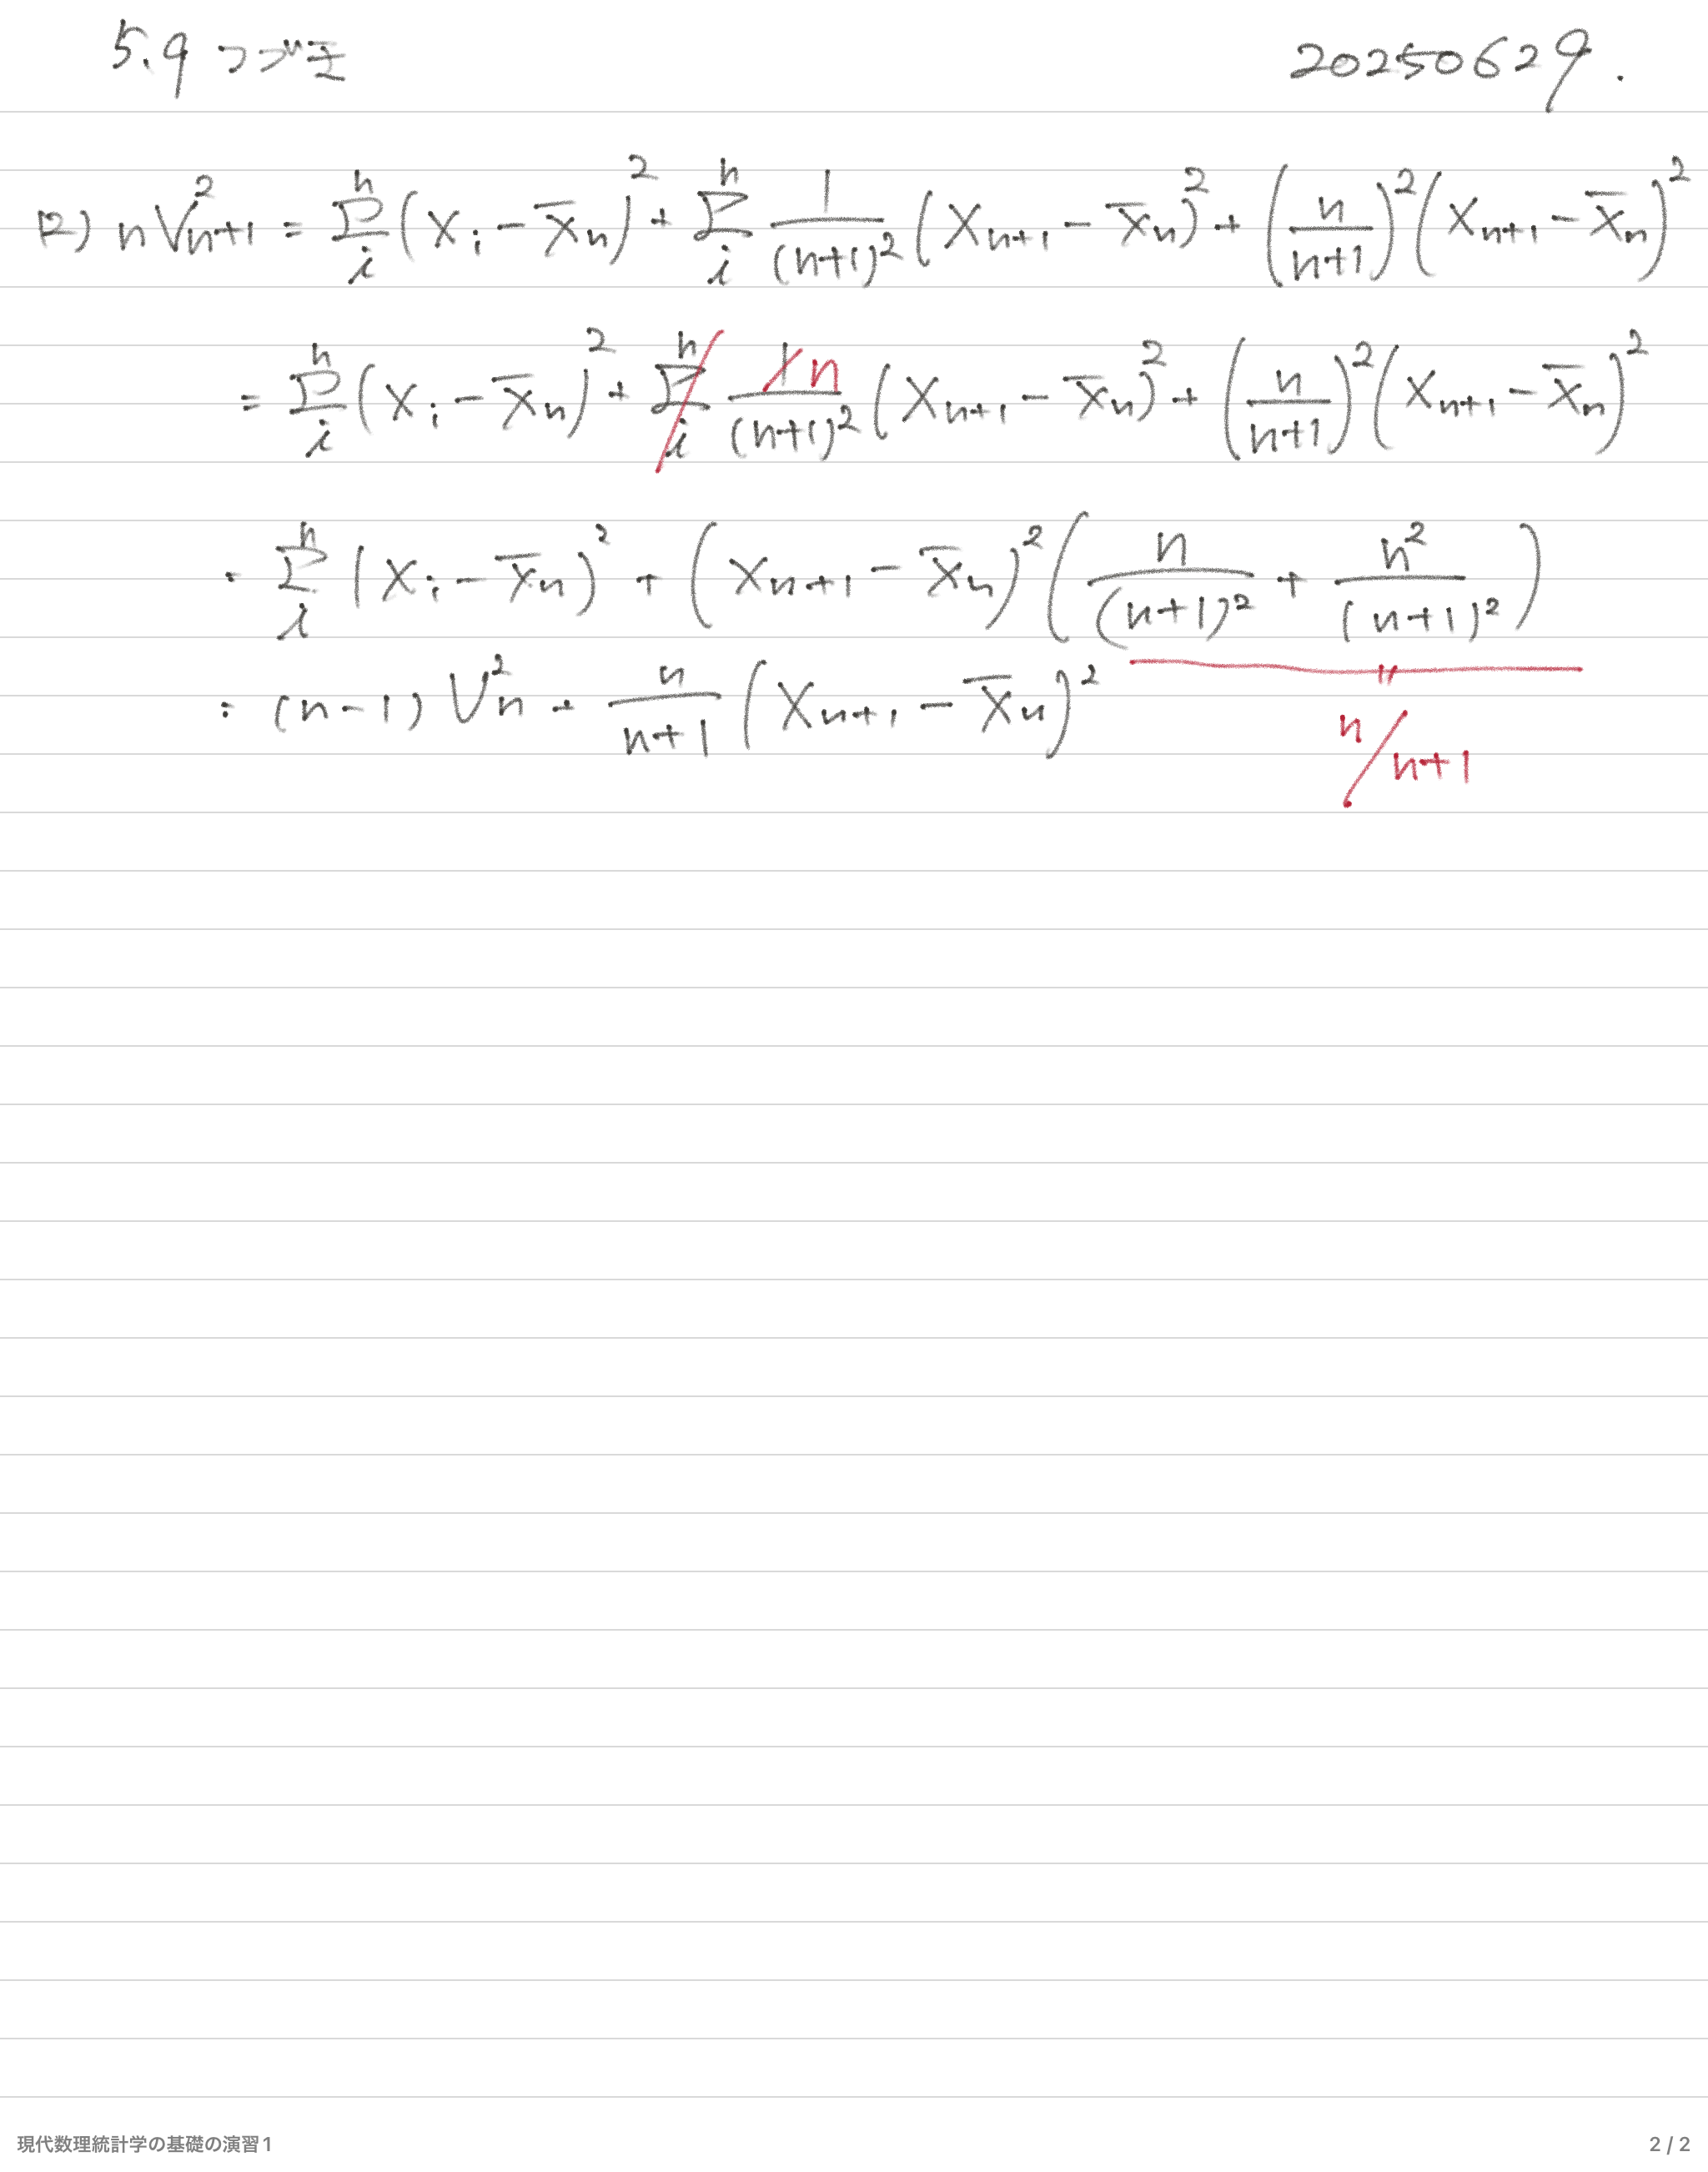 5.9 つづき 20250629.
R) nV²ₙ₊₁ = Σᵢⁿ (Xᵢ − X̄ₙ)² + Σᵢⁿ 1/(n+1)² (Xₙ₊₁ − X̄ₙ)² + (n/(n+1))² (Xₙ₊₁ − X̄ₙ)²
= Σᵢⁿ (Xᵢ − X̄ₙ)² + Σᵢⁿ 1 n/(n+1)² (Xₙ₊₁ − X̄ₙ)² + (n/(n+1))² (Xₙ₊₁ − X̄ₙ)²
= Σᵢⁿ (Xᵢ − X̄ₙ)² + (Xₙ₊₁ − X̄ₙ)² (n/(n+1)² + n²/(n+1)²)
= (n−1) V²ₙ + n/(n+1) (Xₙ₊₁ − X̄ₙ)²
n/n+1
現代数理統計学の基礎の演習1 2 / 2